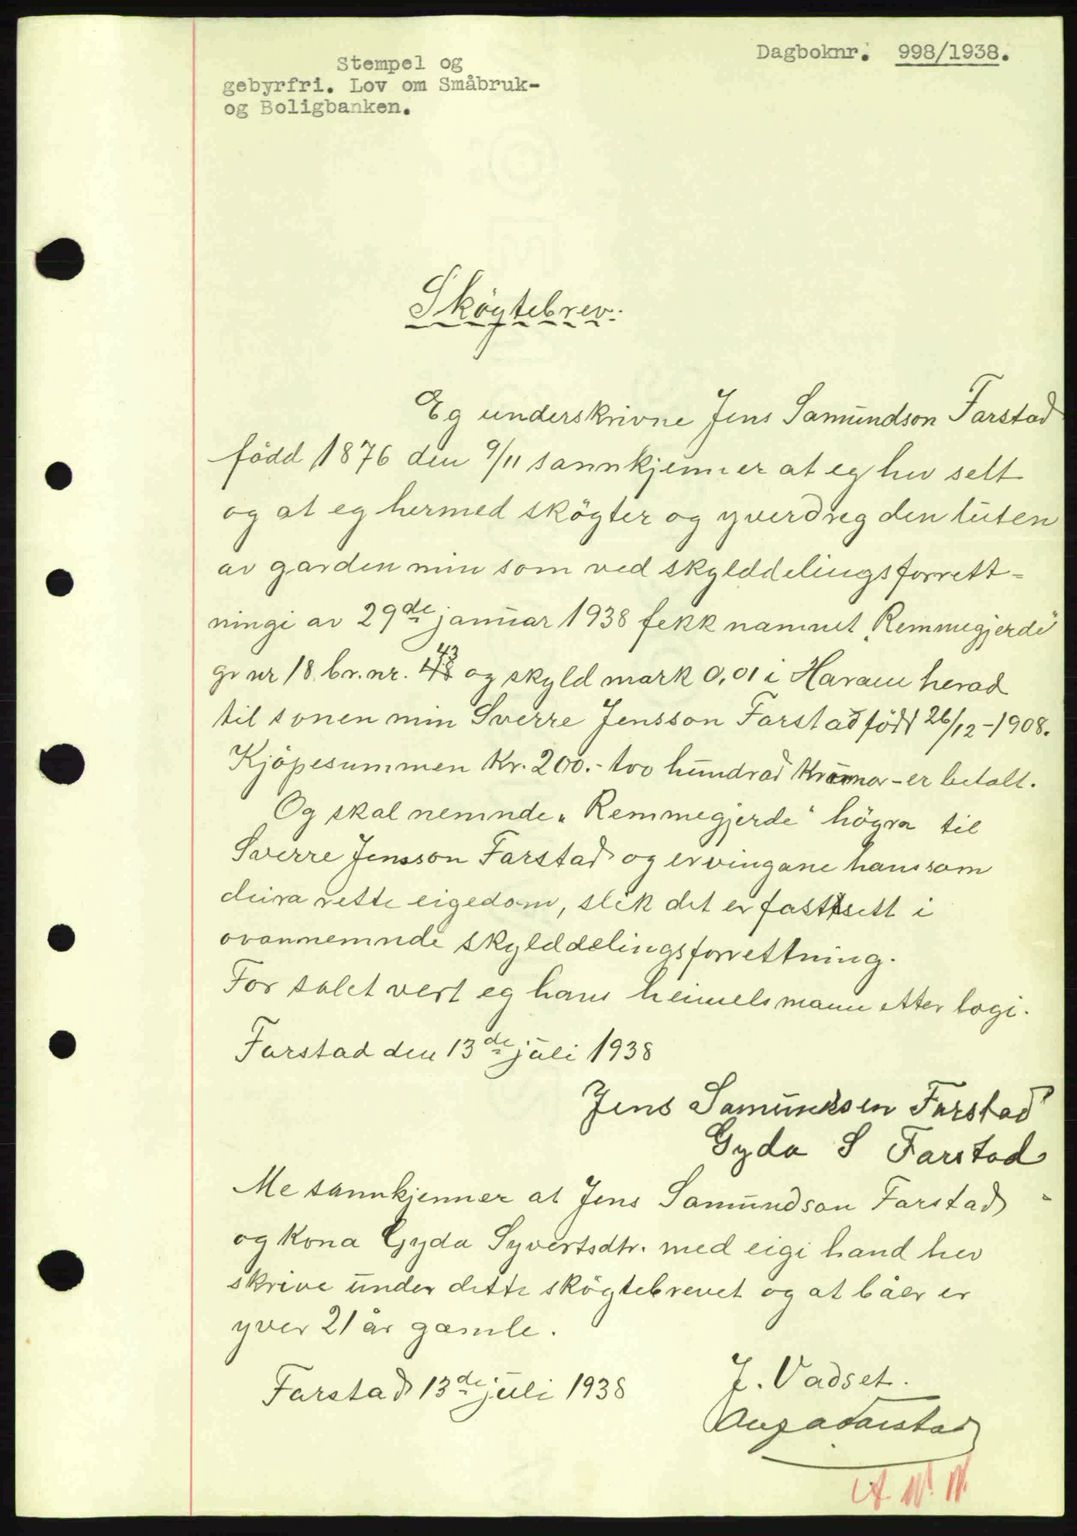 Stempel og
gebyrfri. Lov om Småbruk-
og Boligbanken.
Dagboknr. 998/1938.
Skøgtebrev.
Eg underskrivne Jens Samundson Farstad
född 1876 den 9/11 sannkjenner at eg hev selt
og at eg hermed skøgter og yverdreg den luten
av garden min som ved skylddelingsforrett-
ningi av 29de januar 1938 fekk namnet „Remmegjerde"
gr nr 18. br. nr. 48 43 og skyld mark 0,01 i Haram herad
til sonen min Sverre Jensson Farstad född 26/12-1908.
Kjøpesummen kr. 200.- tvo hundrad Krunor - er betalt.
Og skal nemnde „Remmegjerde" høyra til
Sverre Jensson Farstad og ervingane hans som
deira rette eigedom, slik det er fastsett i
ovannemnde skylddelingsforrettning.
For salet vert eg hans heimelsmann etter logi.
Farstad den 13de juli 1938
Jens Samundsen Farstad
Gyda S Farstad
Me sannkjenner at Jens Samundson Farstad
og kona Gyda Syvertsdtr. med eigi hand hev
skrive under dette skøgtebrevet og at båer er
yver 21 år gamle.
Farstad 13de juli 1938
J. Vadset.
Farstad